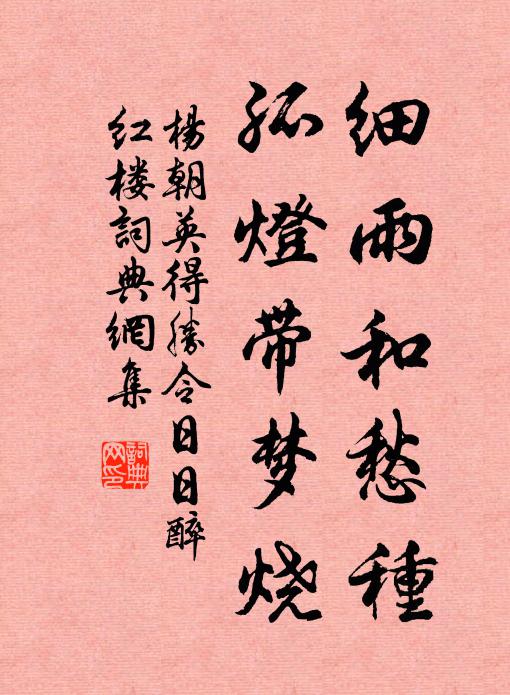 细雨和愁種
孤燈带梦烧
楊朝英得勝令日日醉
红楼詞典網集
詞典
网印